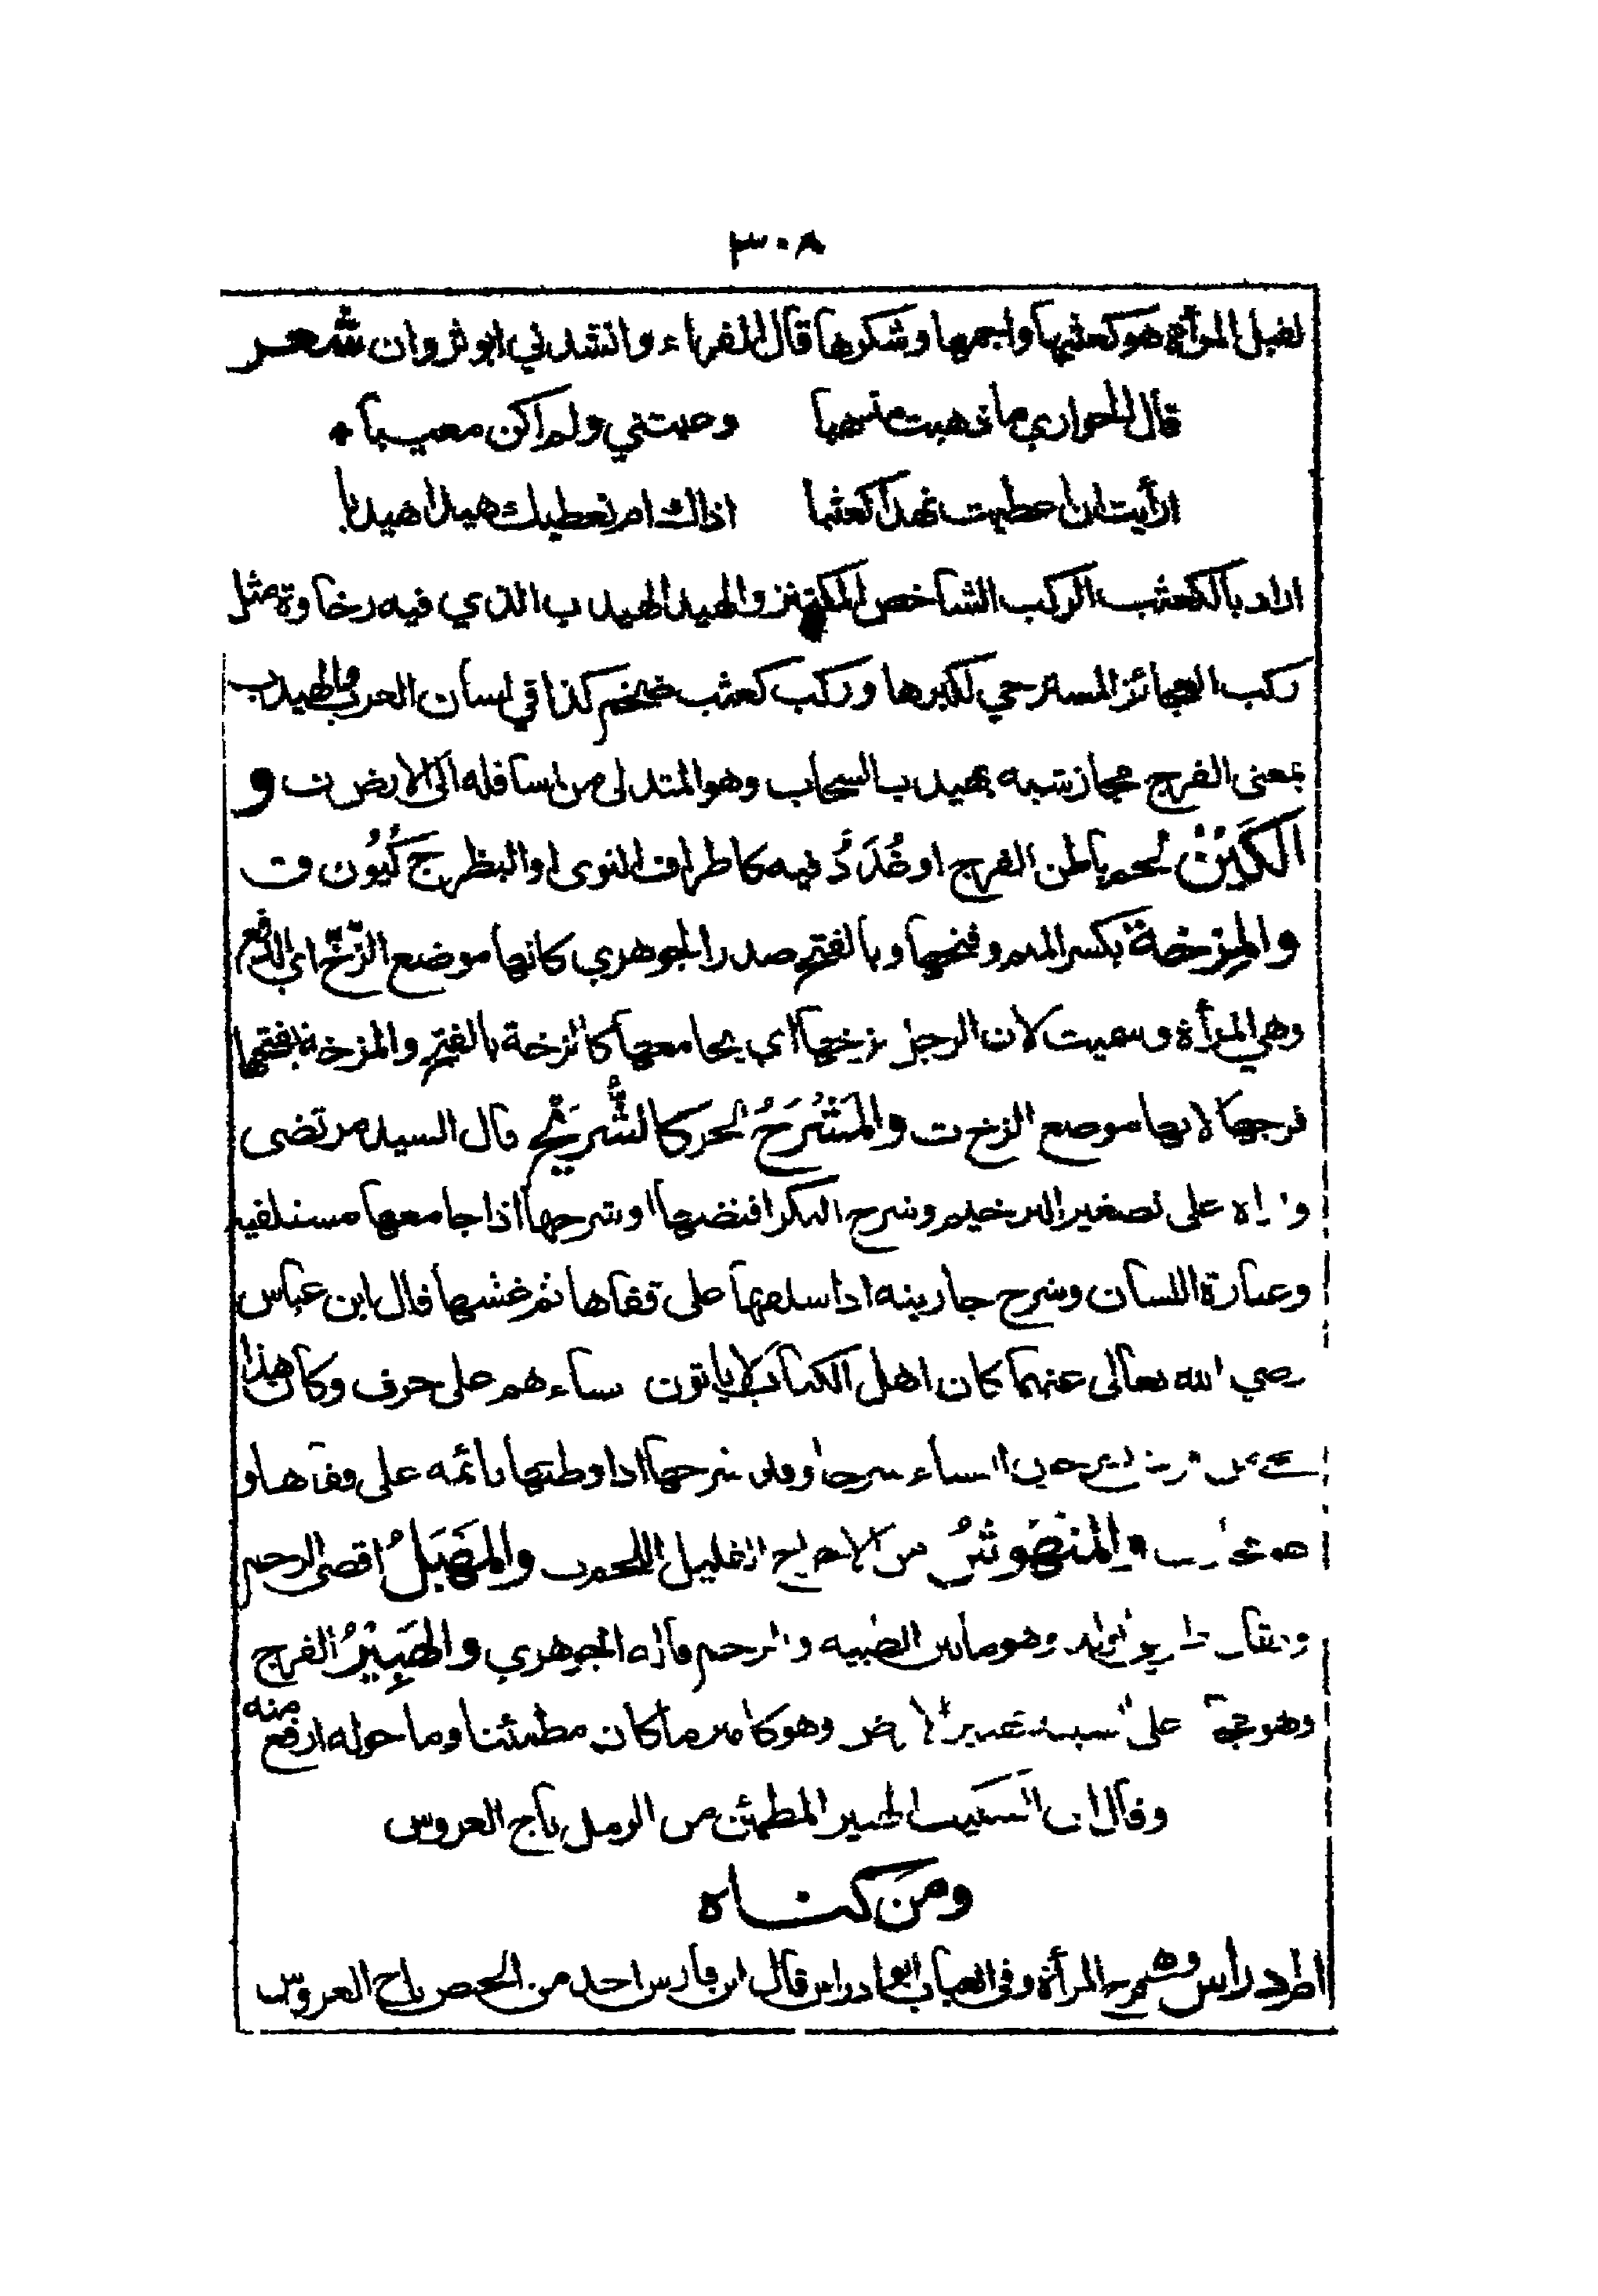 ٣٠٨
لقبل المرأة هو كعثبها واجمها وشكرها قال الفراء وانشدني ابو ثروان شعر
قال الجواري ما ذهبت مذهبا وعبتني ولم اكن معيبا
ارأيت ان اعطيت نهدا كعثبا اذاك ام نعطيك هيدا هيدبا
اراد بالكعثب الركب الشاخص المكتنز والهيد الهيدب الذي فيه رخاوة مثل
ركب العجائز المسترخي لكبرها وركب كعثب ضخم كذا في لسان العرب والهيدب
بمعنى الفرج مجاز شبه بهيدب السحاب وهو المتدلي من اسافله الى الارض ت و
الكَيْنُ لحم باطن الفرج او غُدَدٌ فيه كاطراف النوى او البظر ج كُيُون ق ت
والمِزخة بكسر الميم وفتحها وبالفتح صدر الجوهري كانها موضع الزخّ اي الدفع
وهي المرأة وسميت لان الرجل يزخها اي يجامعها كالزخة بالفتح والمزخة بفتحها
فرجها لانها موضع الزخ ت والمَشْرَحُ الحر كالشُّرَيْح قال السيد مرتضى
و اه على تصغير الترخيم وشرح البكر افتضها او شرحها اذا جامعها مستلقية
وعبارة اللسان وشرح جاريته اذا سلقها على قفاها ثم غشيها قال ابن عباس
رضي الله تعالى عنهما كان اهل الكتاب لا ياتون نساءهم على حرف وكان هذا
النساء شرحا وقد شرحها اذا وطئها نائمة على قفاها و
هو مجاز ت والمَنْهُوشُ من الاحراح القليل اللحم ت والمَهْبِلُ اقصى الرحم
ويقال وهو ما بين الظبية والرحم قاله الجوهري والهَبِيْرُ الفرج
وهو على وهو كامير ما كان مطمئنا وما حوله ارفع منه
وقال ابن السكيت الهبير المطمئن من الرمل تاج العروس
ومن كناه
ابو دراس وهو حر المرأة وفي العباب ابو ادراس قال ابن فارس احد من الحيض تاج العروس